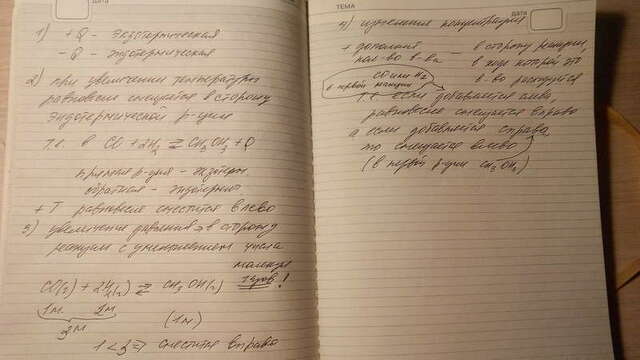 ДАТА
1) +Q - экзотермическая
-Q - эндотермическая
2) при увеличении температуры
равновесие смещается в сторону
эндотермической р-ции
т.е. в CO + 2H2 ⇄ CH3OH + Q
прямая р-ция - экзотерм.
обратная - эндотермич
+T равновесие сместится влево
3) увеличение давления → в сторону
реакции с уменьшением числа
молекул
газов!
CO(г) + 2H2(г) ⇄ CH3OH(г)
1м 2м
3м (1м)
1 < 3 ⇒ сместится вправо
ТЕМА
ДАТА
4) изменения концентрации
+ дополнит.
кол-во в-ва — в сторону реакции,
в ходе которой это
в-во расходуется
CO или H2
в первой реакции
т.е. если добавляется слева,
равновесие смещается вправо
а если добавляется справа,
то смещается влево
(в первой р-ции CH3OH)